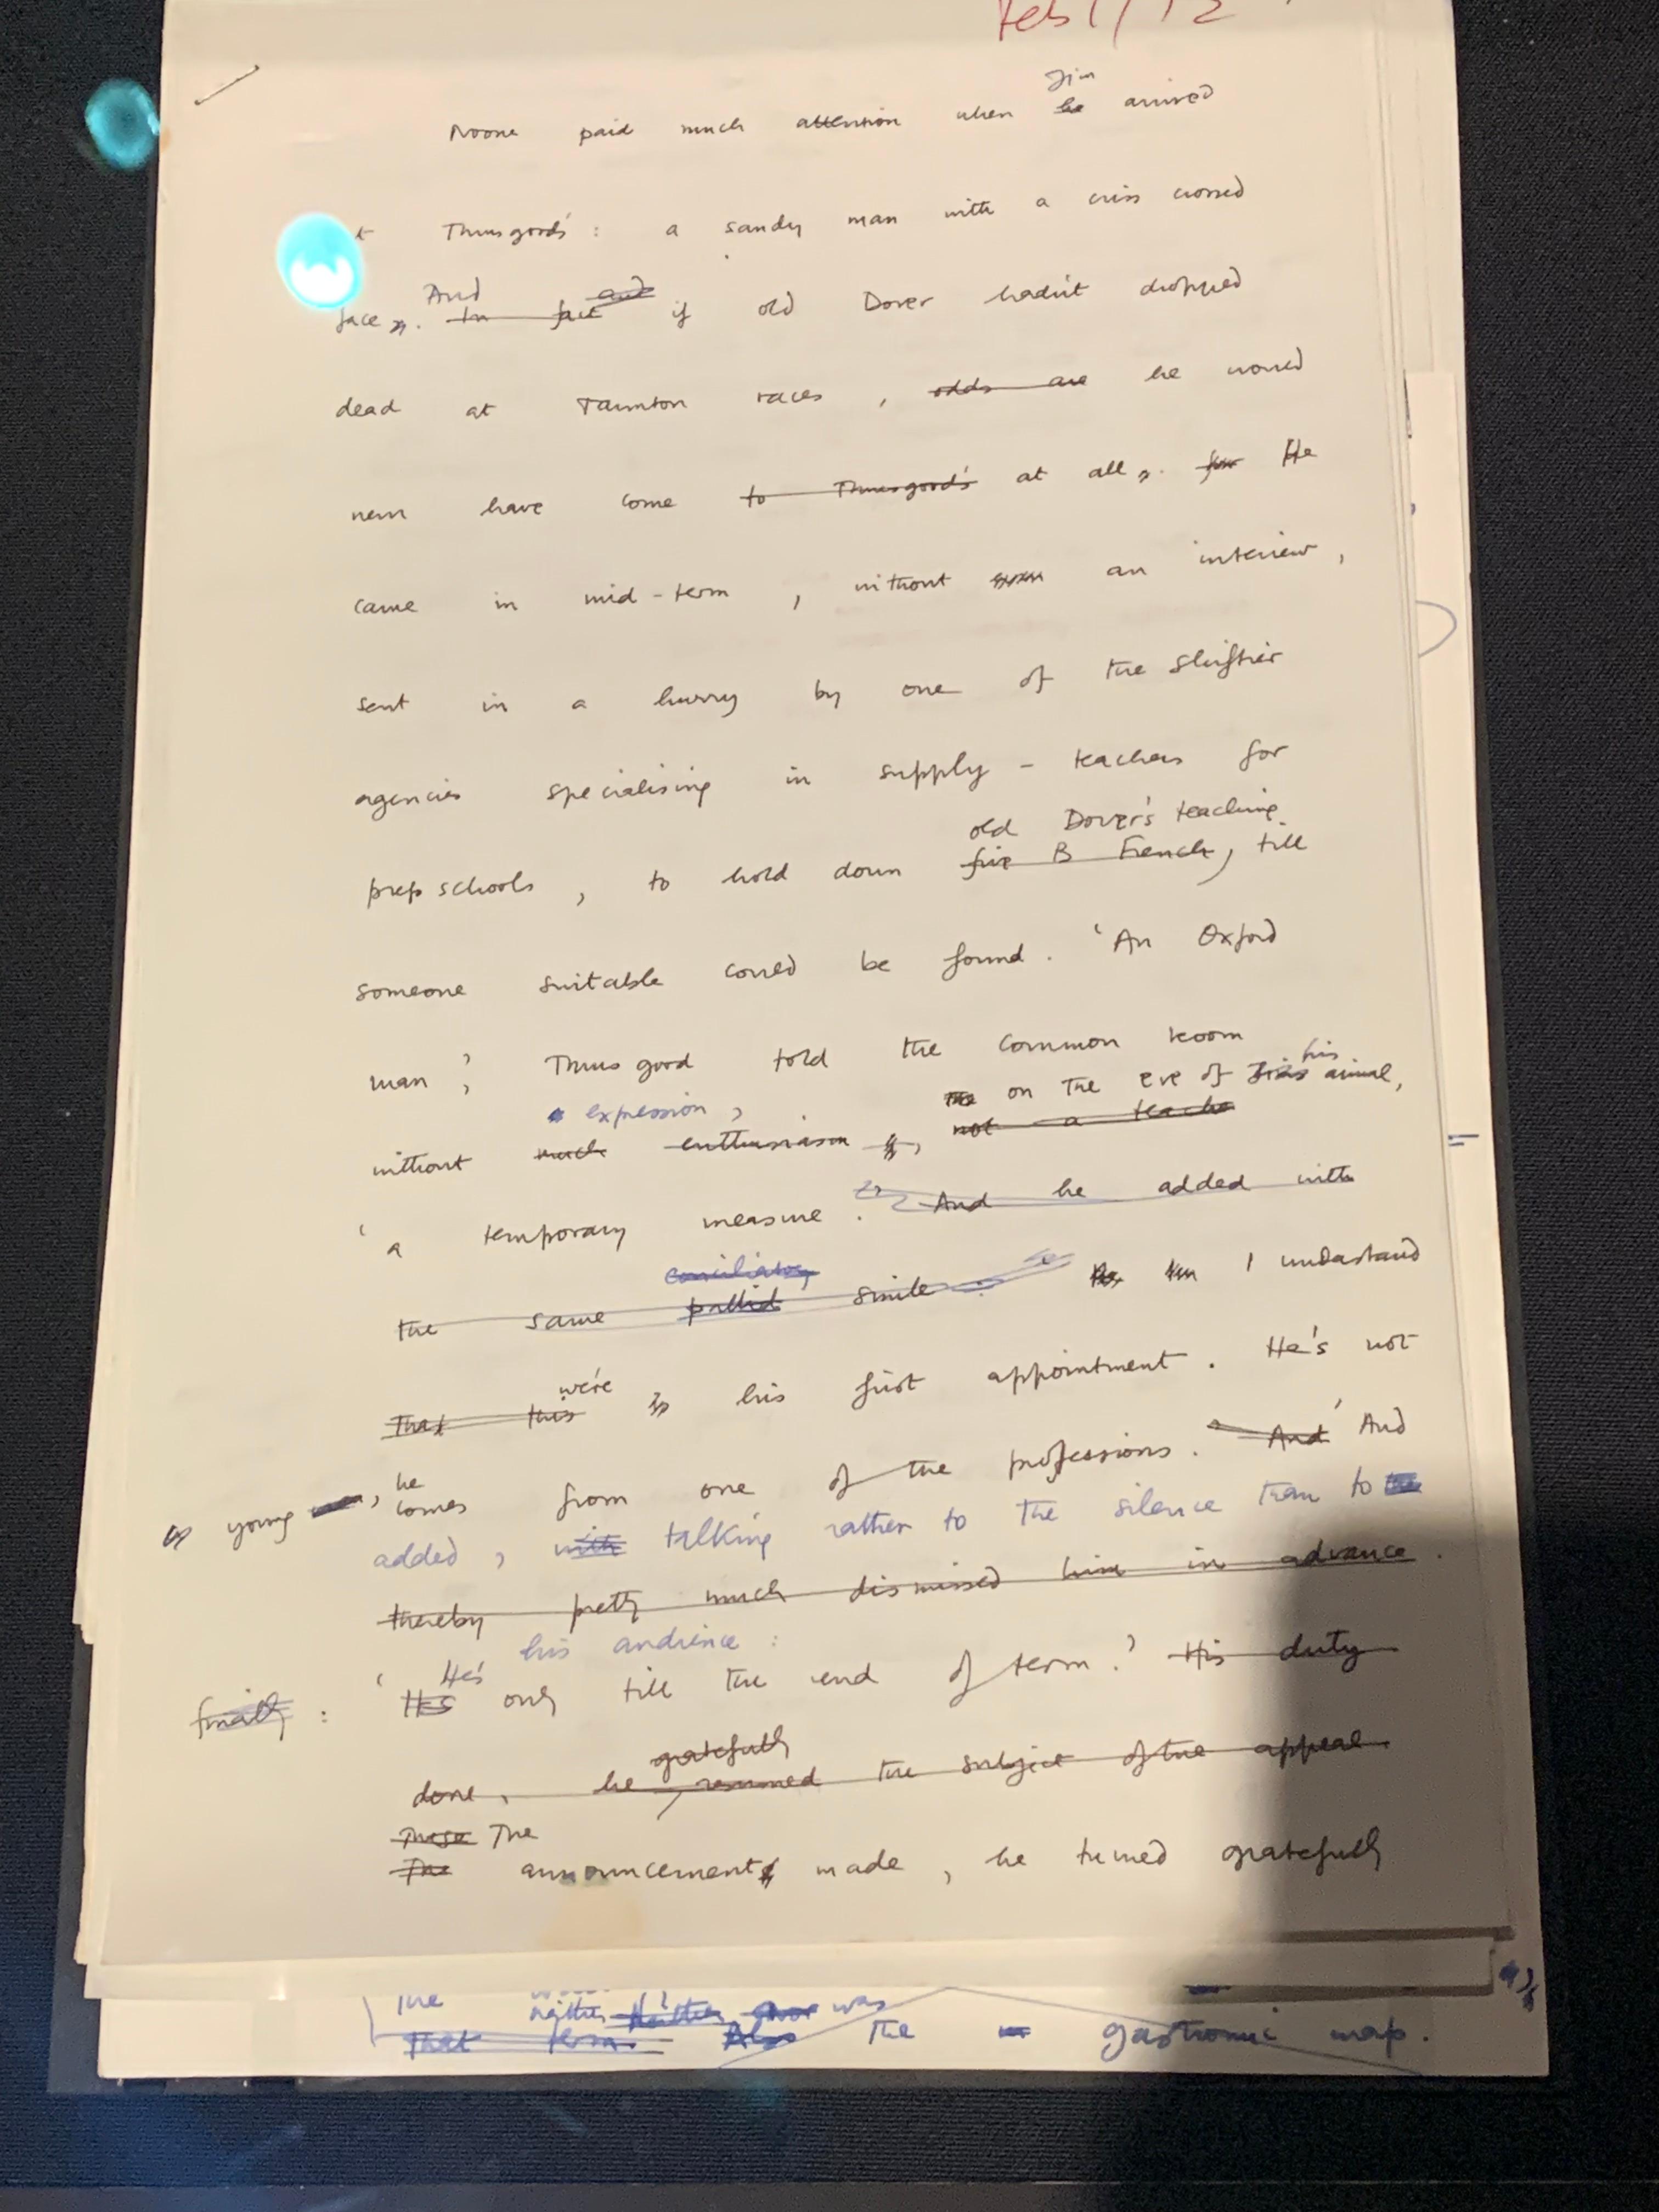 Feb 1/72
Jim
Noone paid much attention when he arrived
t Thursgood's : a sandy man with a criss crossed
And and
face. In fact if old Dover hadn't dropped
dead at Taunton races, odds are he would
never have come to Thursgood's at all. for He
came in mid-term, without an interview,
sent in a hurry by one of the shiftier
agencies specialising in supply-teachers for
old Dover's teaching
prep schools, to hold down five B French, till
someone suitable could be found. 'An Oxford
man,' Thursgood told the common room
his
expression, on the eve of arrival,
without much enthusiasm, not a teacher
'a temporary measure. And he added with
conciliatory
the same pallid smile. I understand
we're
That this is his first appointment. He's not
he
young, comes from one of the professions.' And And
added, with talking rather to the silence than to the
thereby pretty much dismissed him in advance.
his audience:
He's
finally: 'He's only till the end of term.' His duty
gratefully
done, he resumed the subject of the appeal.
These The
The announcement made, he turned gratefully
The
neither was
That term Also the gastromic map.